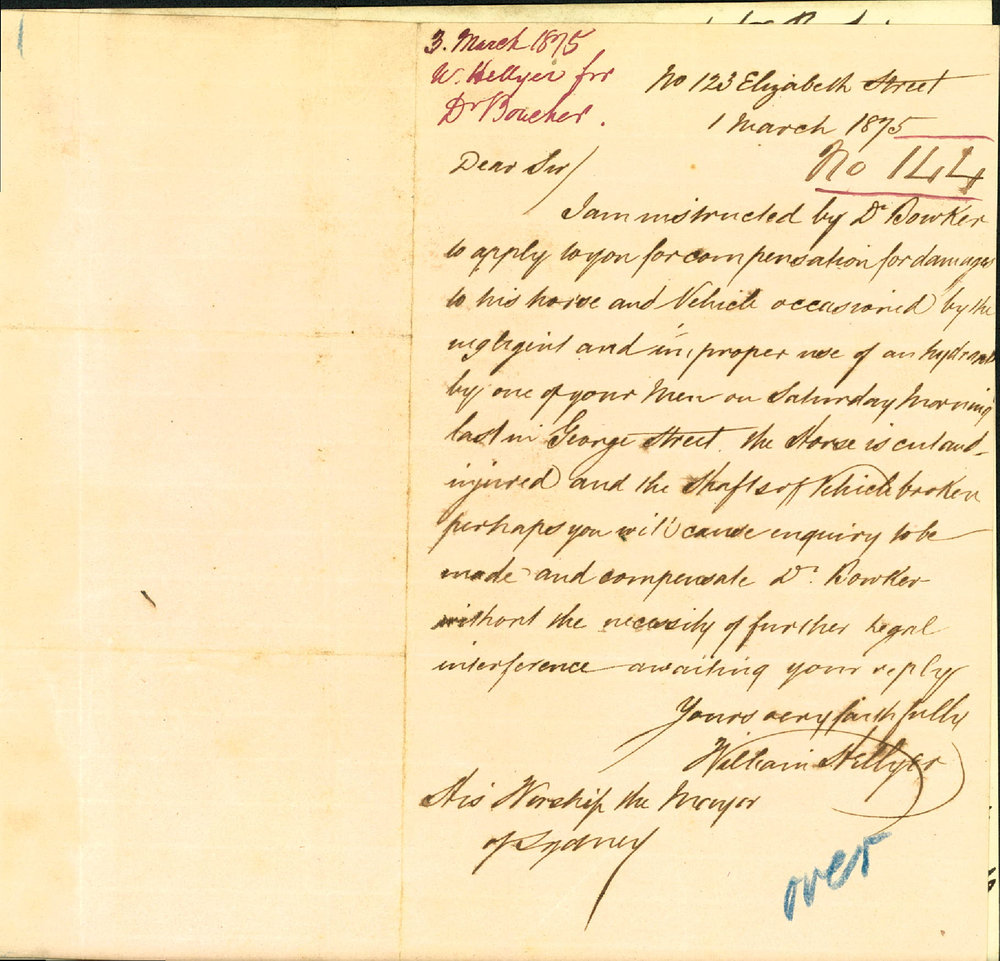 3. March 1875
W. Hellyer for
Dr Boucher.
No 123 Elizabeth Street
1 March 1875
No 144
Dear Sir/
I am instructed by Dr Bowker
to apply to you for compensation for damages
to his horse and Vehicle occasioned by the
negligent and improper use of an hydrant
by one of your Men on Saturday Morning
last in George Street. the Horse is cut and
injured and the Shafts of Vehicle broken
perhaps you will cause enquiry to be
made and compensate Dr. Bowker
without the necessity of further legal
interference awaiting your reply
Yours very faithfully
William Hellyer
His Worship the Mayor
of Sydney
over